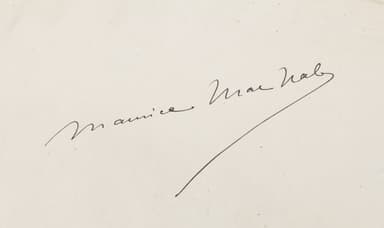 Maurice Mac Nab